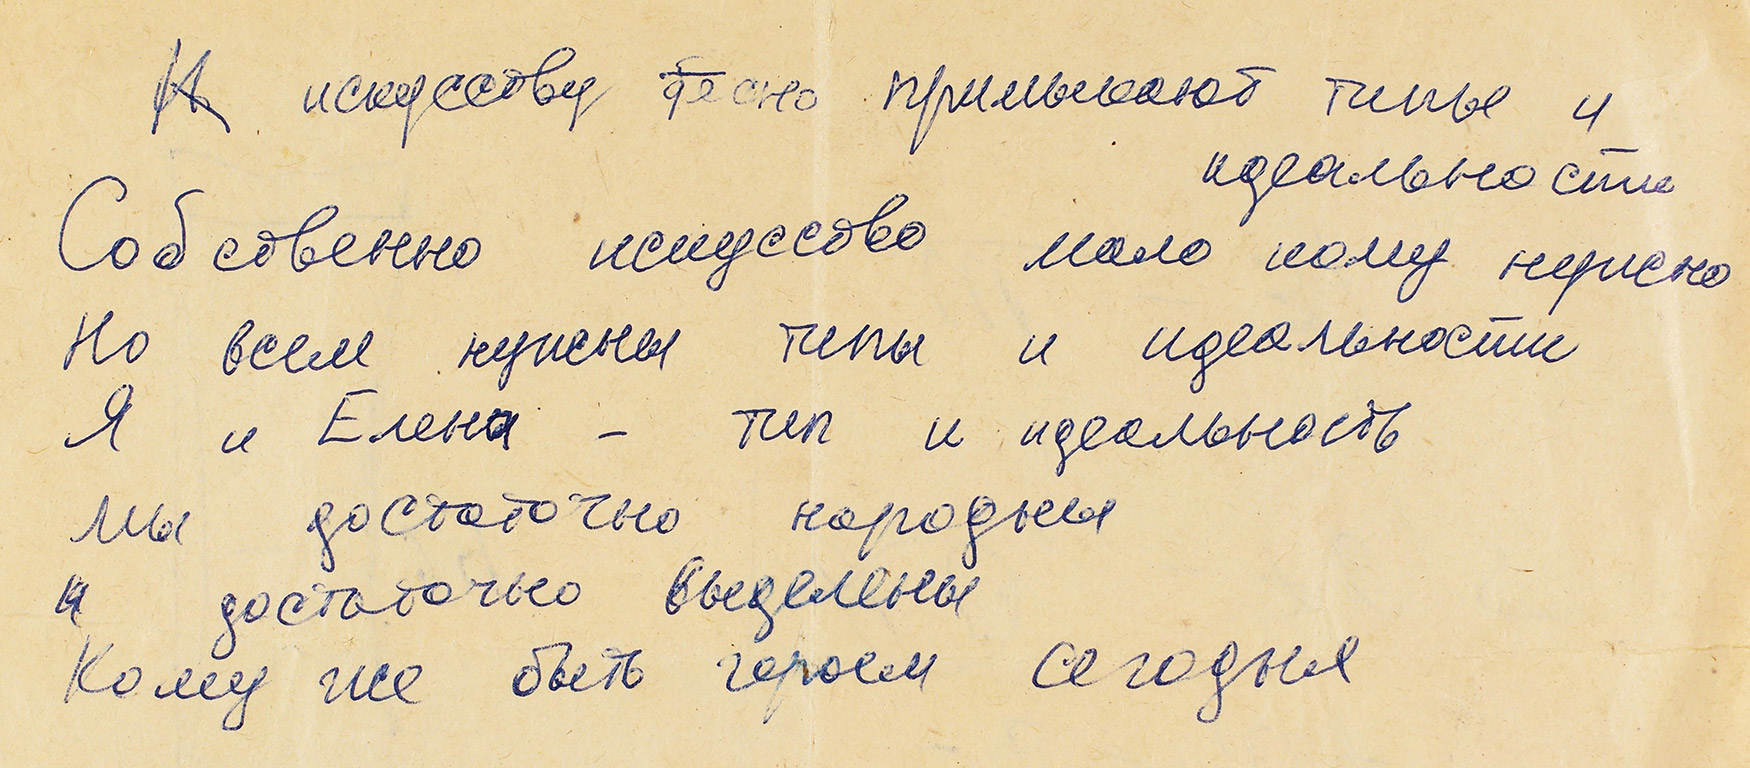 К искусству тесно примыкают типы и
идеальности
Собственно искусство мало кому нужно
Но всем нужны типы и идеальности
Я и Елена – тип и идеальность
Мы достаточно народны
и достаточно выделены
Кому же быть героем сегодня